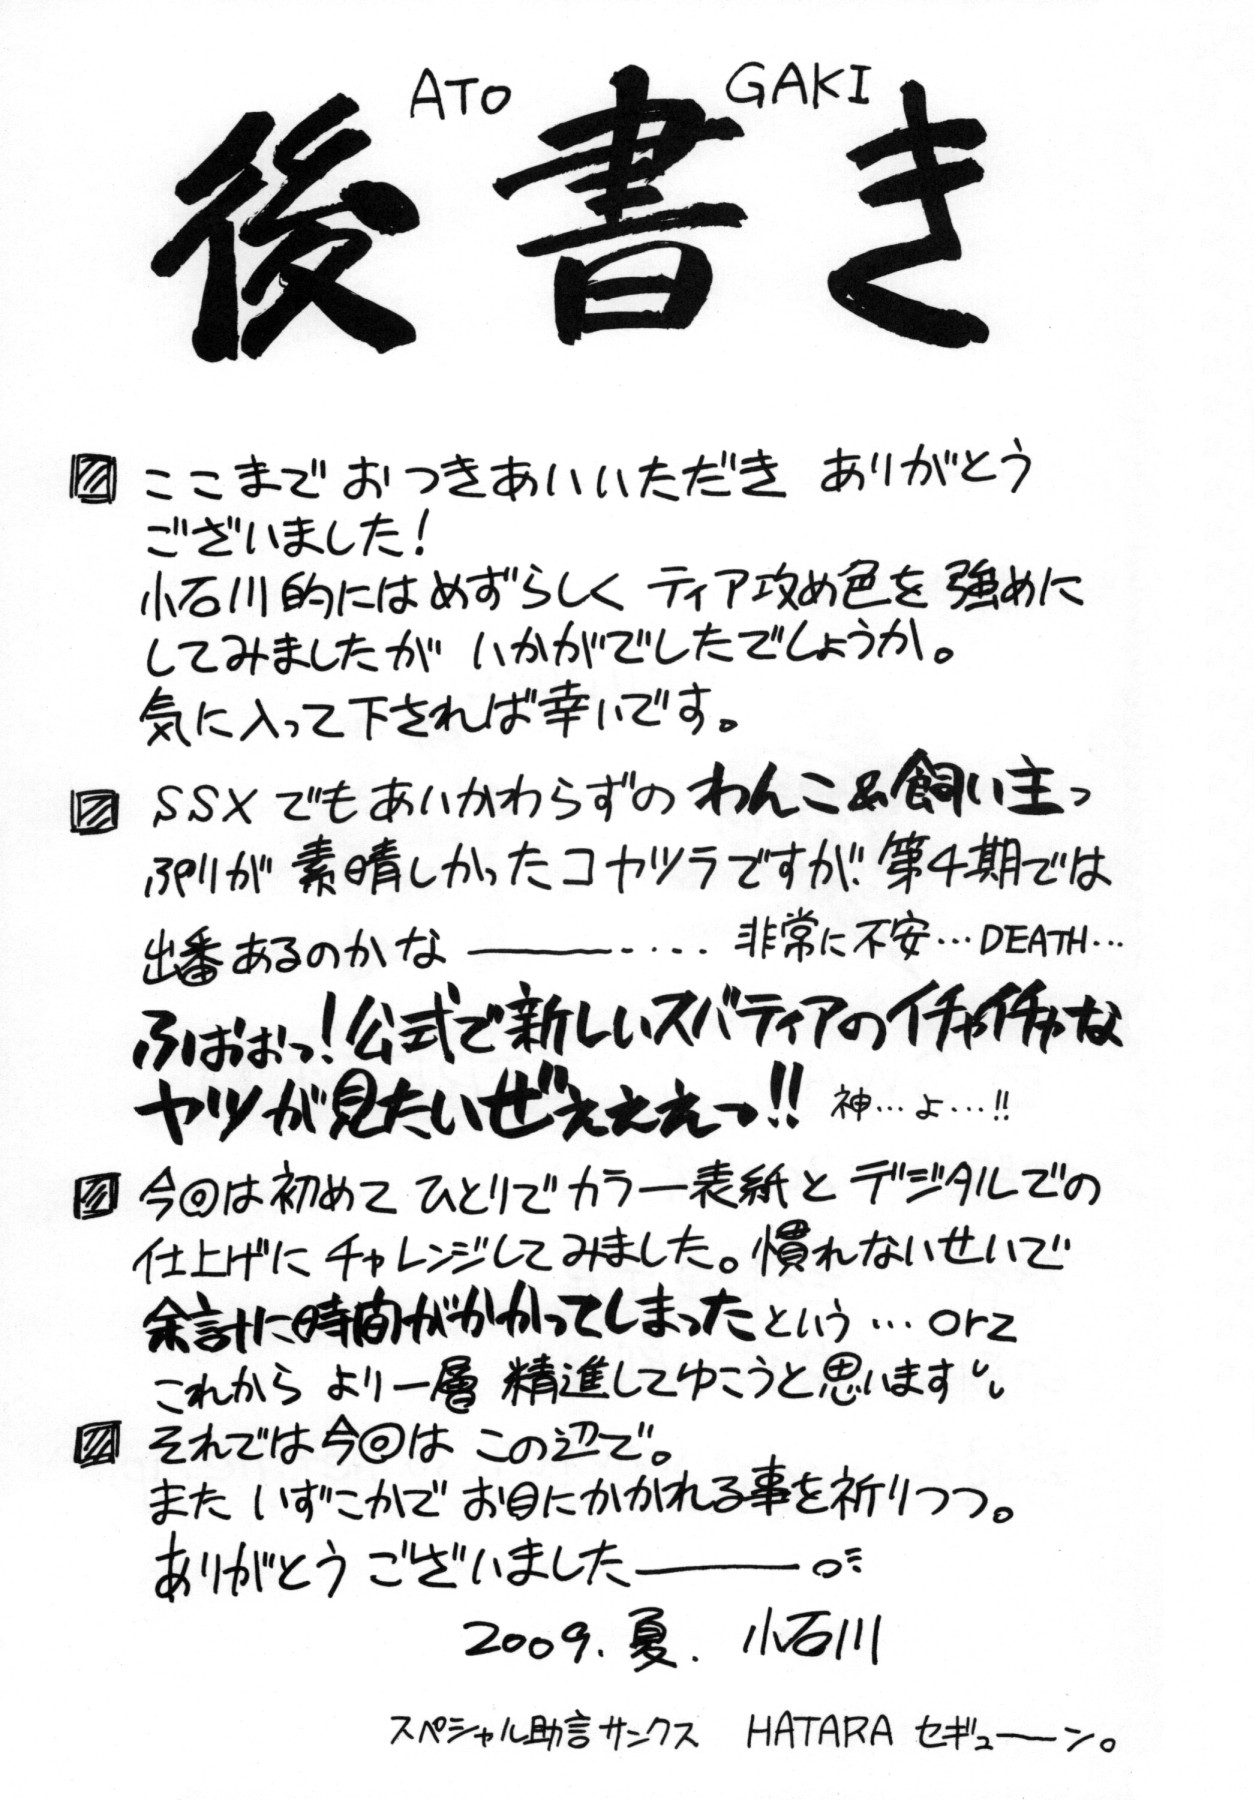 ATO GAKI
後書き
ここまでおつきあいいただき ありがとう
ございました!
小石川的にはめずらしく ティア攻め色を強めに
してみましたが いかがでしたでしょうか。
気に入って下されば幸いです。
SSXでもあいかわらずのわんこ&飼い主っ
ぷりが素晴しかったコヤツラですが、第4期では
出番あるのかな――‐‥‥ 非常に不安…DEATH…
ふおおおっ!公式で新しいスパティアのイチャイチャな
ヤツが見たいぜぇぇぇっ!! 神…よ…!!
今回は初めて ひとりでカラー表紙とデジタルでの
仕上げにチャレンジしてみました。慣れないせいで
余計に時間がかかってしまったという…orz
これから より一層 精進してゆこうと思います
それでは今回は この辺で。
また いずこかで お目にかかれる事を祈りつつ。
ありがとう ございました――――。
2009.夏. 小石川
スペシャル助言サンクス HATARA セギューーン。